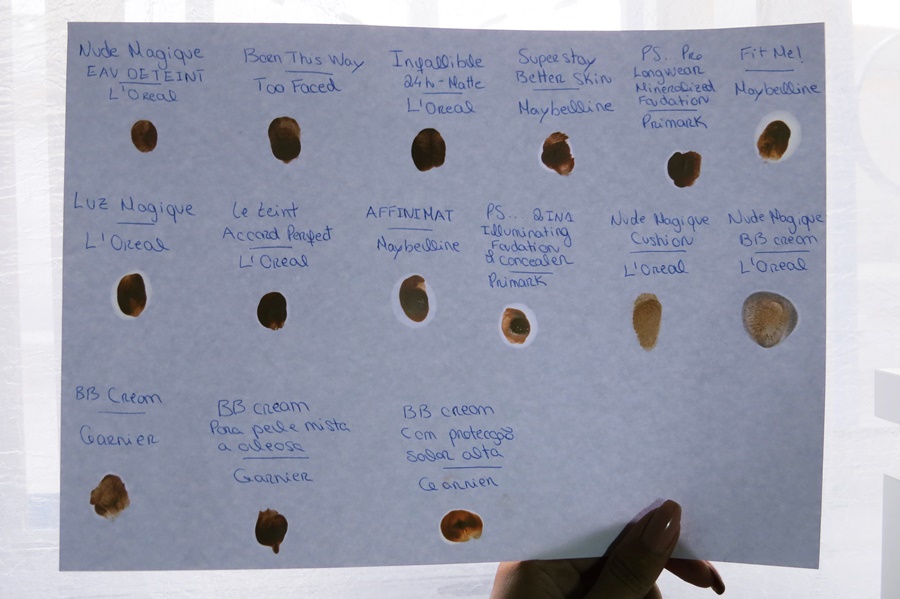 Nude Magique
EAU DE TEINT
L'Oreal
Born This Way
Too Faced
Infallible
24h-Matte
L'Oreal
Superstay
Better Skin
Maybelline
PS.. Pro
Longwear
Mineralized
Foudation
Primark
Fit Me!
Maybelline
Luz Magique
L'Oreal
Le teint
Accord Perfect
L'Oreal
AFFINIMAT
Maybelline
PS... 2IN1
Illuminating
Foudation
& Concealer
Primark
Nude Magique
Cushion
L'Oreal
Nude Magique
BB cream
L'Oreal
BB Cream
Garnier
BB cream
Para pele mista
a oleosa
Garnier
BB cream
Com protecção
solar alta
Garnier